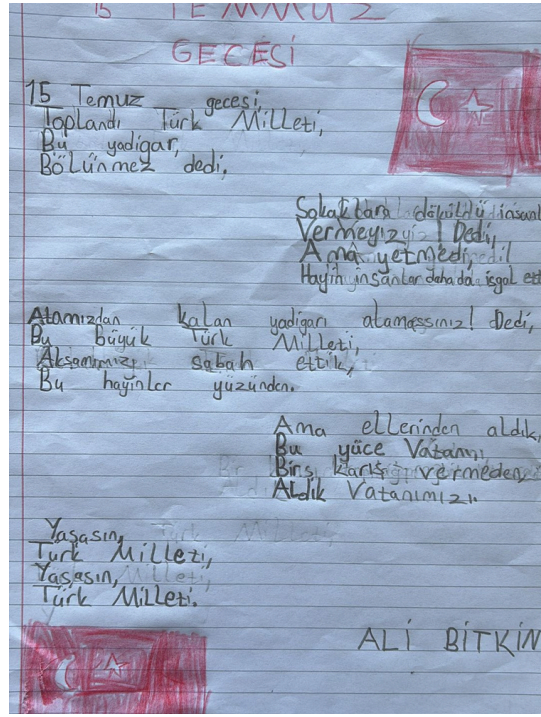 15 TEMMUZ
GECESİ
15 Temuz gecesi,
Toplandı Türk Milleti,
Bu yadigar,
Bölünmez dedi,
Sokaklara döküldü insanl
Vermeyiz! Dedi,
Ama yetmedi,
Hayin insanlar daha da işgal ett
Atamızdan kalan yadigarı alamassınız! Dedi,
Bu büyük Türk Milleti,
Akşamımızı sabah ettik,
Bu hayinler yüzünden.
Ama ellerinden aldık,
Bu yüce Vatanı,
Birş karış vermeden
Aldık Vatanımızı.
Yaşasın,
Türk Milleti,
Yaşasın,
Türk Milleti.
ALİ BİTKİN